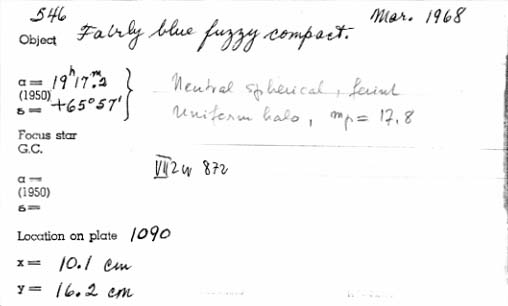 546
Mar. 1968
Object Fairly blue fuzzy compact.
α = 19h17m.2
(1950)
δ = +65°57'
Neutral spherical, faint
Uniform halo, mp = 17.8
Focus star
G.C.
VIIZw 872
α =
(1950)
δ =
Location on plate 1090
x = 10.1 cm
y = 16.2 cm